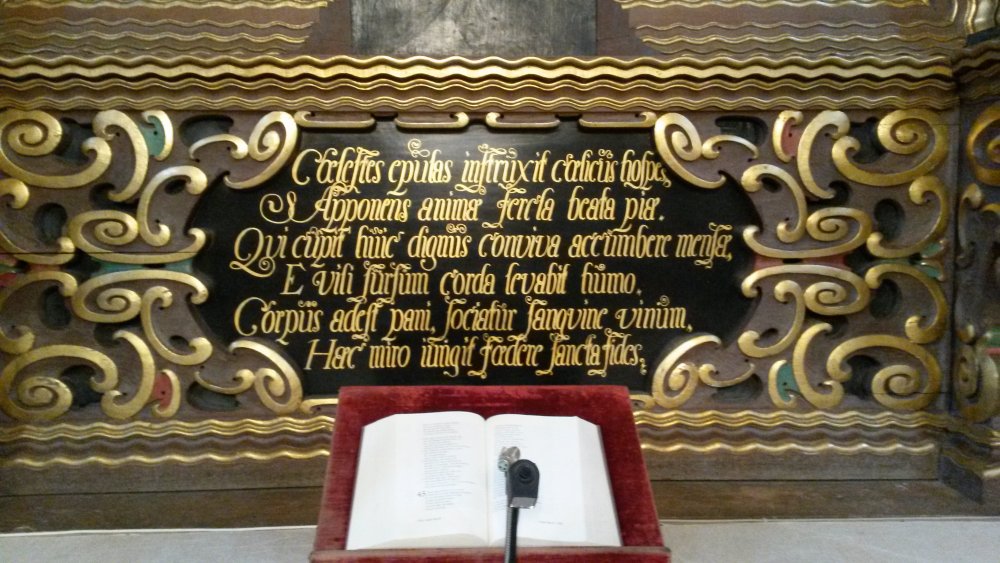 Cœlestes epulas instruxit cœlicus hospes,
Apponens animæ fercla beata piæ.
Qui cupit huic dignus conviva accumbere mensæ,
E vili sursum corda levabit humo.
Corpus adest pani, sociatur sangvine vinum,
Hæc miro iungit fœdere sancta fides.